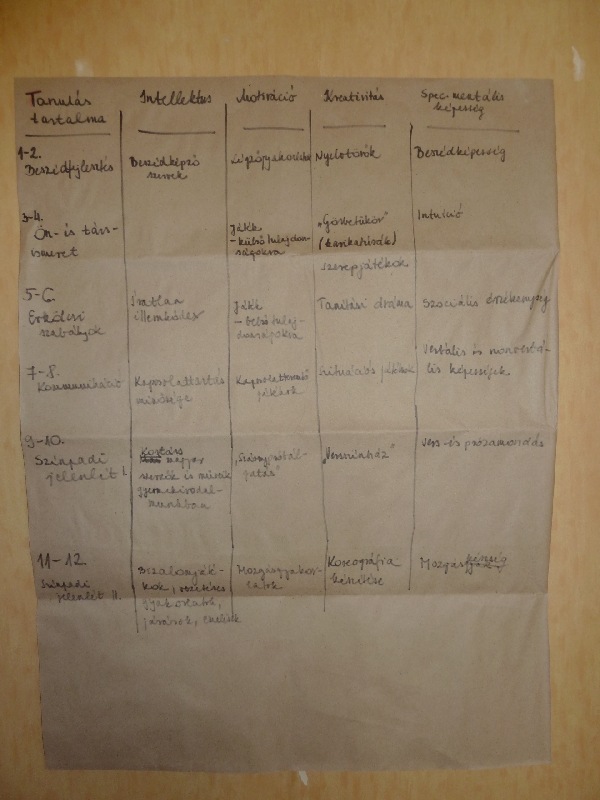 Tanulás
tartalma
Intellektus
Motiváció
Kreativitás
Spec. mentális
képesség
1-2.
Beszédfejlesztés
Beszédképző
szervek
Légzőgyakorlatok
Nyelvtörők
Beszédképesség
3-4.
Ön- és társ-
ismeret
Játék
- külső tulajdon-
ságokra
„Görbetükör”
(karikatúrák)
szerepjátékok
Intuíció
5-6.
Erkölcsi
szabályok
Íratlan
illemkódex
Játék
- belső tulaj-
donságokra
Tanítási dráma
Szociális érzékenység
7-8.
Kommunikáció
Kapcsolattartás
minősége
Kapcsolatteremtő
játékok
Szituációs játékok
Verbális és nonverbá-
lis képességek.
9-10.
Színpadi
jelenlét I.
Kortárs
magyar
szerzők és műveik
gyermekirodal-
munkban
„Versszínház”
Vers- és prózamondás
11-12.
Színpadi
jelenlét II.
gyakorlatok,
járások,
Mozgásgyakor-
latok
Koreográfia
készítése
Mozgáskészség